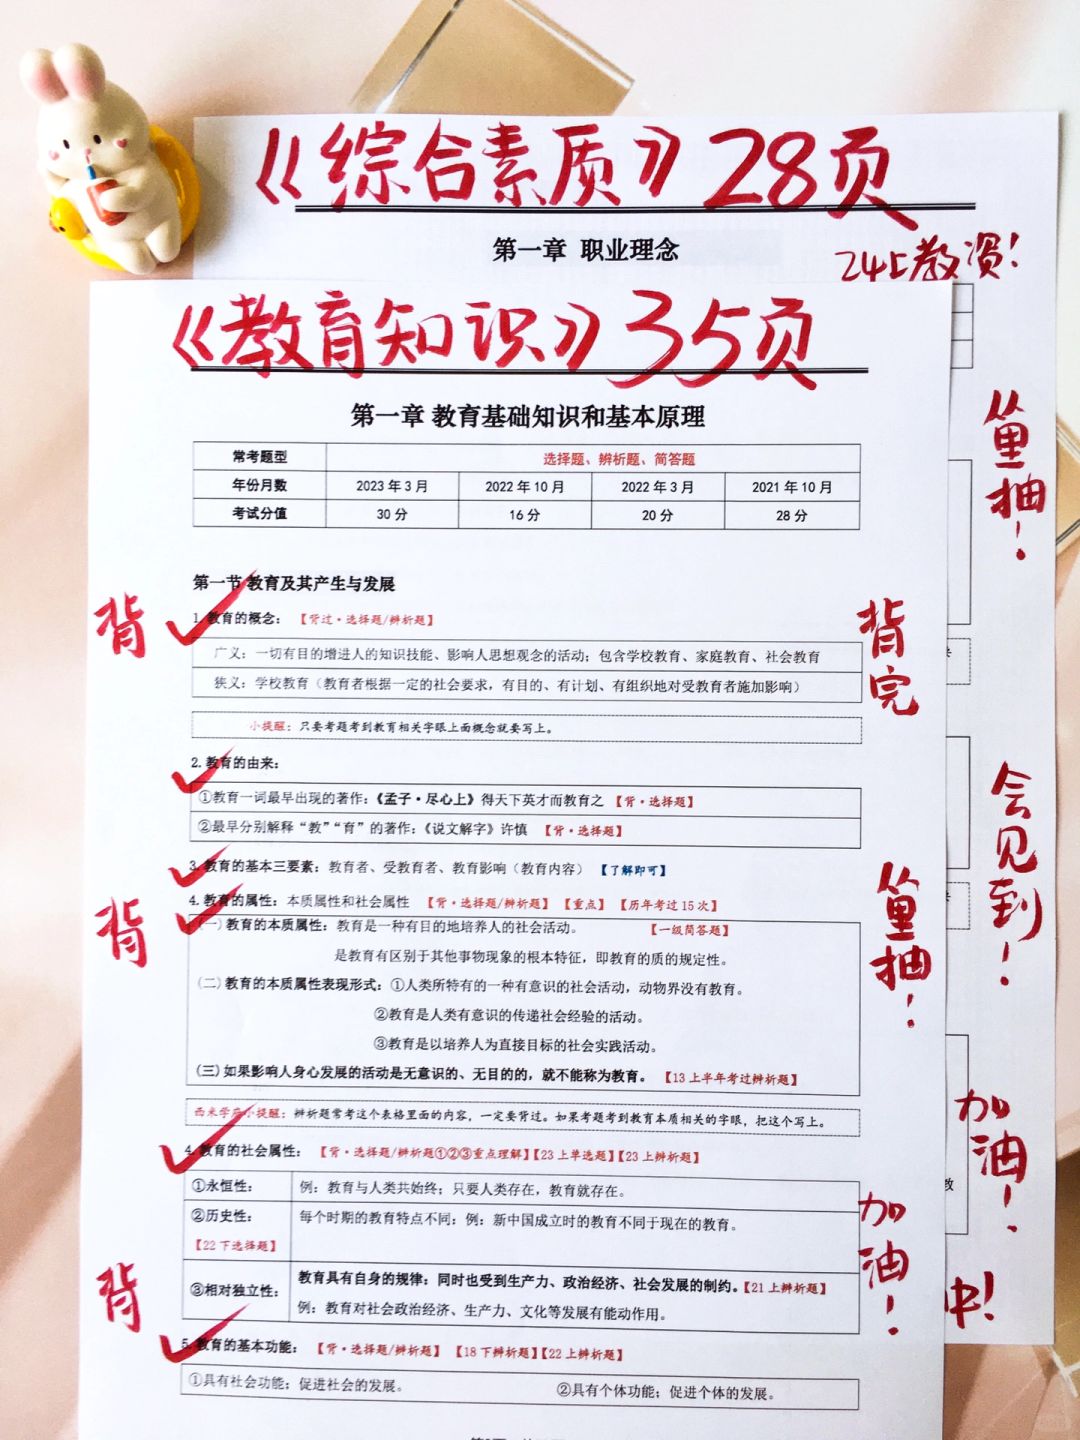 《综合素质》28页
第一章 职业理念
24上教资！
《教育知识》35页
第一章 教育基础知识和基本原理
常考题型 选择题、辨析题、简答题
年份月数 2023年3月 2022年10月 2022年3月 2021年10月
考试分值 30分 16分 20分 28分
第一节 教育及其产生与发展
1.教育的概念：【背过·选择题/辨析题】
广义：一切有目的增进人的知识技能、影响人思想观念的活动；包含学校教育、家庭教育、社会教育
狭义：学校教育（教育者根据一定的社会要求，有目的、有计划、有组织地对受教育者施加影响）
小提醒：只要考题考到教育相关字眼上面概念就要写上。
2.教育的由来：
①教育一词最早出现的著作：《孟子·尽心上》得天下英才而教育之【背·选择题】
②最早分别解释“教”“育”的著作：《说文解字》许慎 【背·选择题】
3.教育的基本三要素：教育者、受教育者、教育影响（教育内容）【了解即可】
4.教育的属性：本质属性和社会属性 【背·选择题/辨析题】【重点】【历年考过15次】
(一)教育的本质属性：教育是一种有目的地培养人的社会活动。 【一级简答题】
是教育有区别于其他事物现象的根本特征，即教育的质的规定性。
(二)教育的本质属性表现形式：①人类所特有的一种有意识的社会活动，动物界没有教育。
②教育是人类有意识的传递社会经验的活动。
③教育是以培养人为直接目标的社会实践活动。
(三)如果影响人身心发展的活动是无意识的、无目的的，就不能称为教育。【13上半年考过辨析题】
西米学府小提醒：辨析题常考这个表格里面的内容，一定要背过。如果考题考到教育本质相关的字眼，把这个写上。
4.教育的社会属性：【背·选择题/辨析题①②③重点理解】【23上单选题】【23上辨析题】
①永恒性： 例：教育与人类共始终；只要人类存在，教育就存在。
②历史性： 每个时期的教育特点不同：例：新中国成立时的教育不同于现在的教育。
【22下选择题】
③相对独立性： 教育具有自身的规律：同时也受到生产力、政治经济、社会发展的制约。【21上辨析题】
例：教育对社会政治经济、生产力、文化等发展有能动作用。
5.教育的基本功能：【背·选择题/辨析题】【18下辨析题】【22上辨析题】
①具有社会功能；促进社会的发展。 ②具有个体功能；促进个体的发展。
背
背
背
背完
加油！
会见到！
加油！
教